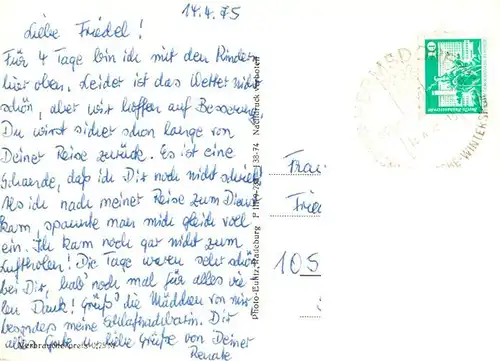 14.4.75
Liebe Friedel!
Für 4 Tage bin ich mit den Kindern
hier oben. Leider ist das Wetter nicht
schön, aber wir hoffen auf Besserung.
Du wirst sicher schon lange von
Deiner Reise zurück. Es ist eine
Schande, daß ich Dir noch nicht schrieb.
Als ich nach meiner Reise zum Dienst
kam, spannte man mich gleich voll
ein. Ich kam noch gar nicht zum
Luftholen! Die Tage waren sehr schön
bei Dir, hab' noch mal für alles vie-
len Dank! Grüß' die Mädchen von mir
besonders meine Schlafnachbarin. Dir
alles Gute liebe Grüße von Deiner
Renate
Verbraucherpreis
Photo-Eulitz, Ralleburg
38-74 Nachdruck verboten
10
WINTERSPORT
Frau
Frie
105